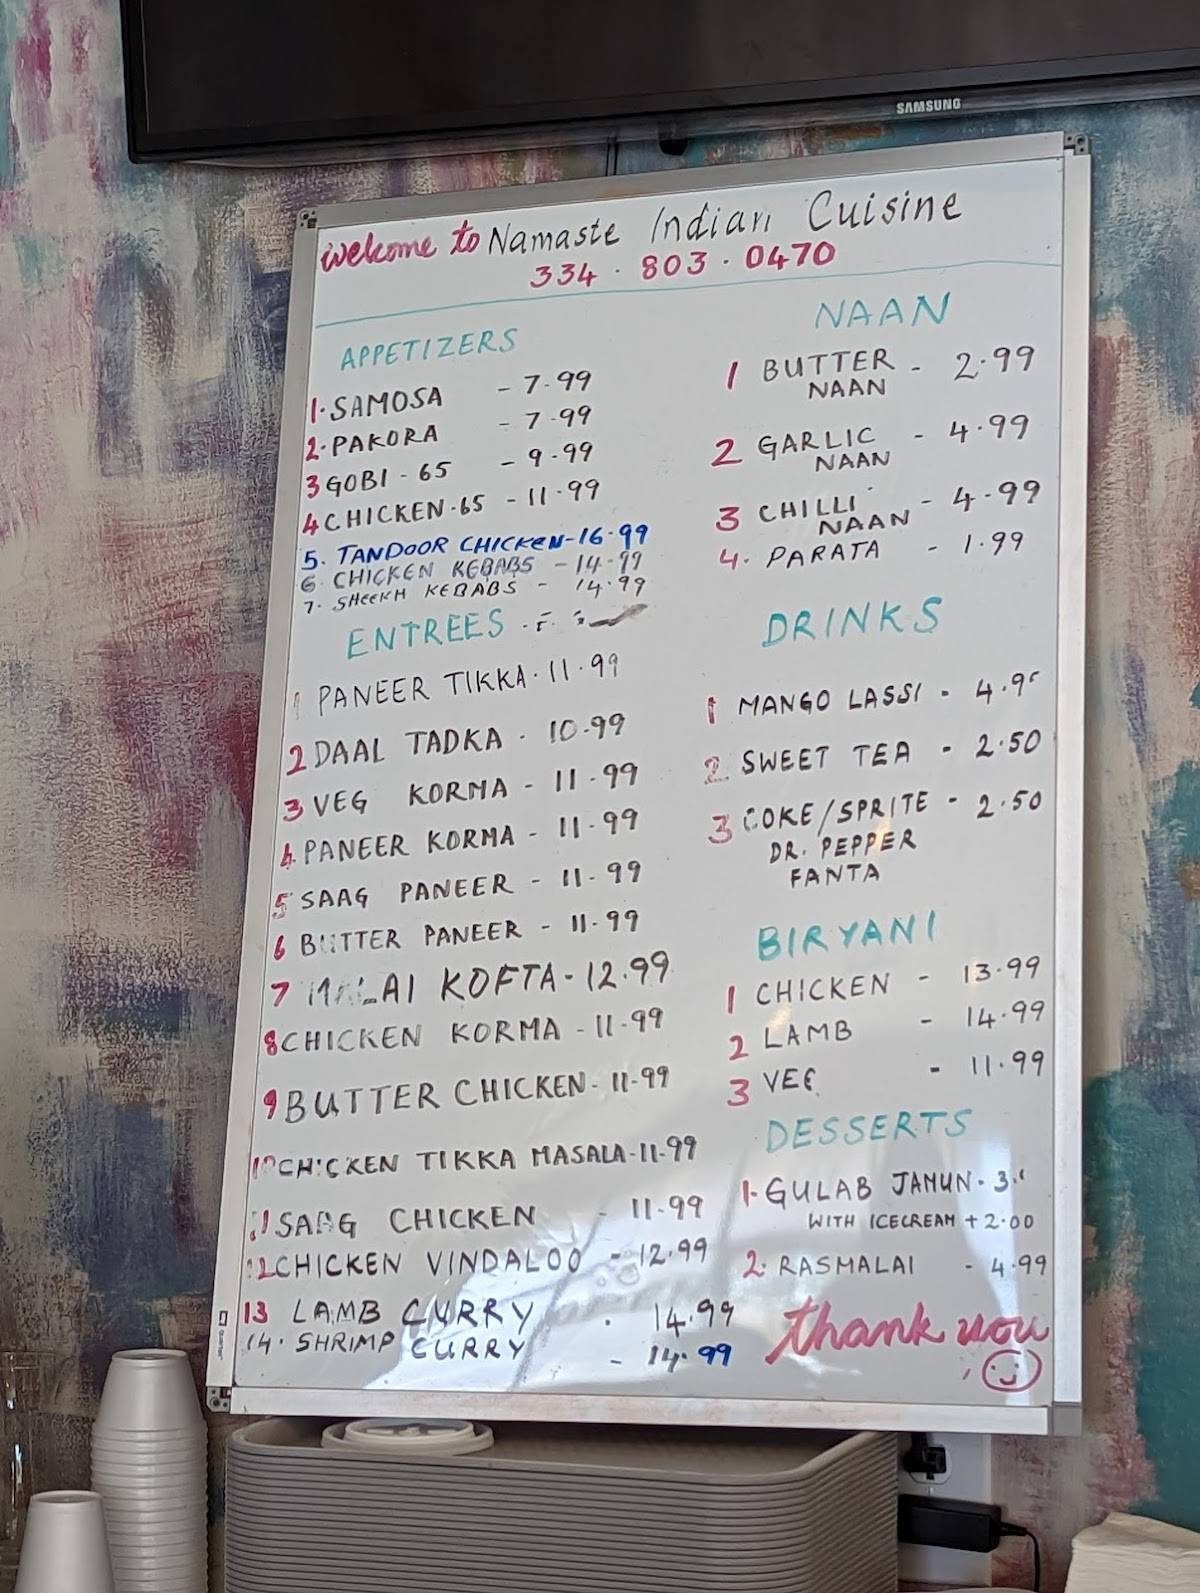 SAMSUNG
welcome to Namaste Indian Cuisine
334 . 803 . 0470
APPETIZERS
1. SAMOSA - 7.99
2. PAKORA - 7.99
3 GOBI - 65 - 9.99
4 CHICKEN.65 - 11.99
5. TANDOOR CHICKEN - 16.99
6. CHICKEN KEBABS - 14.99
7. SHEEKH KEBABS - 14.99
ENTREES
1 PANEER TIKKA. 11.99
2 DAAL TADKA - 10.99
3 VEG KORMA - 11.99
4. PANEER KORMA - 11.99
5 SAAG PANEER - 11.99
6 BUTTER PANEER - 11.99
7 MALAI KOFTA - 12.99
8 CHICKEN KORMA - 11.99
9 BUTTER CHICKEN - 11.99
10 CHICKEN TIKKA MASALA - 11.99
11 SAAG CHICKEN - 11.99
12 CHICKEN VINDALOO - 12.99
13 LAMB CURRY . 14.99
14. SHRIMP CURRY - 14.99
NAAN
1 BUTTER - 2.99
NAAN
2 GARLIC - 4.99
NAAN
3 CHILLI - 4.99
NAAN
4. PARATA - 1.99
DRINKS
1 MANGO LASSI -
2 SWEET TEA - 2.50
3 COKE/SPRITE - 2.50
DR. PEPPER
FANTA
BIRYANI
1 CHICKEN - 13.99
2 LAMB - 14.99
3 VEG - 11.99
DESSERTS
1. GULAB JAMUN -
WITH ICECREAM + 2.00
2. RASMALAI - 4.99
thank you